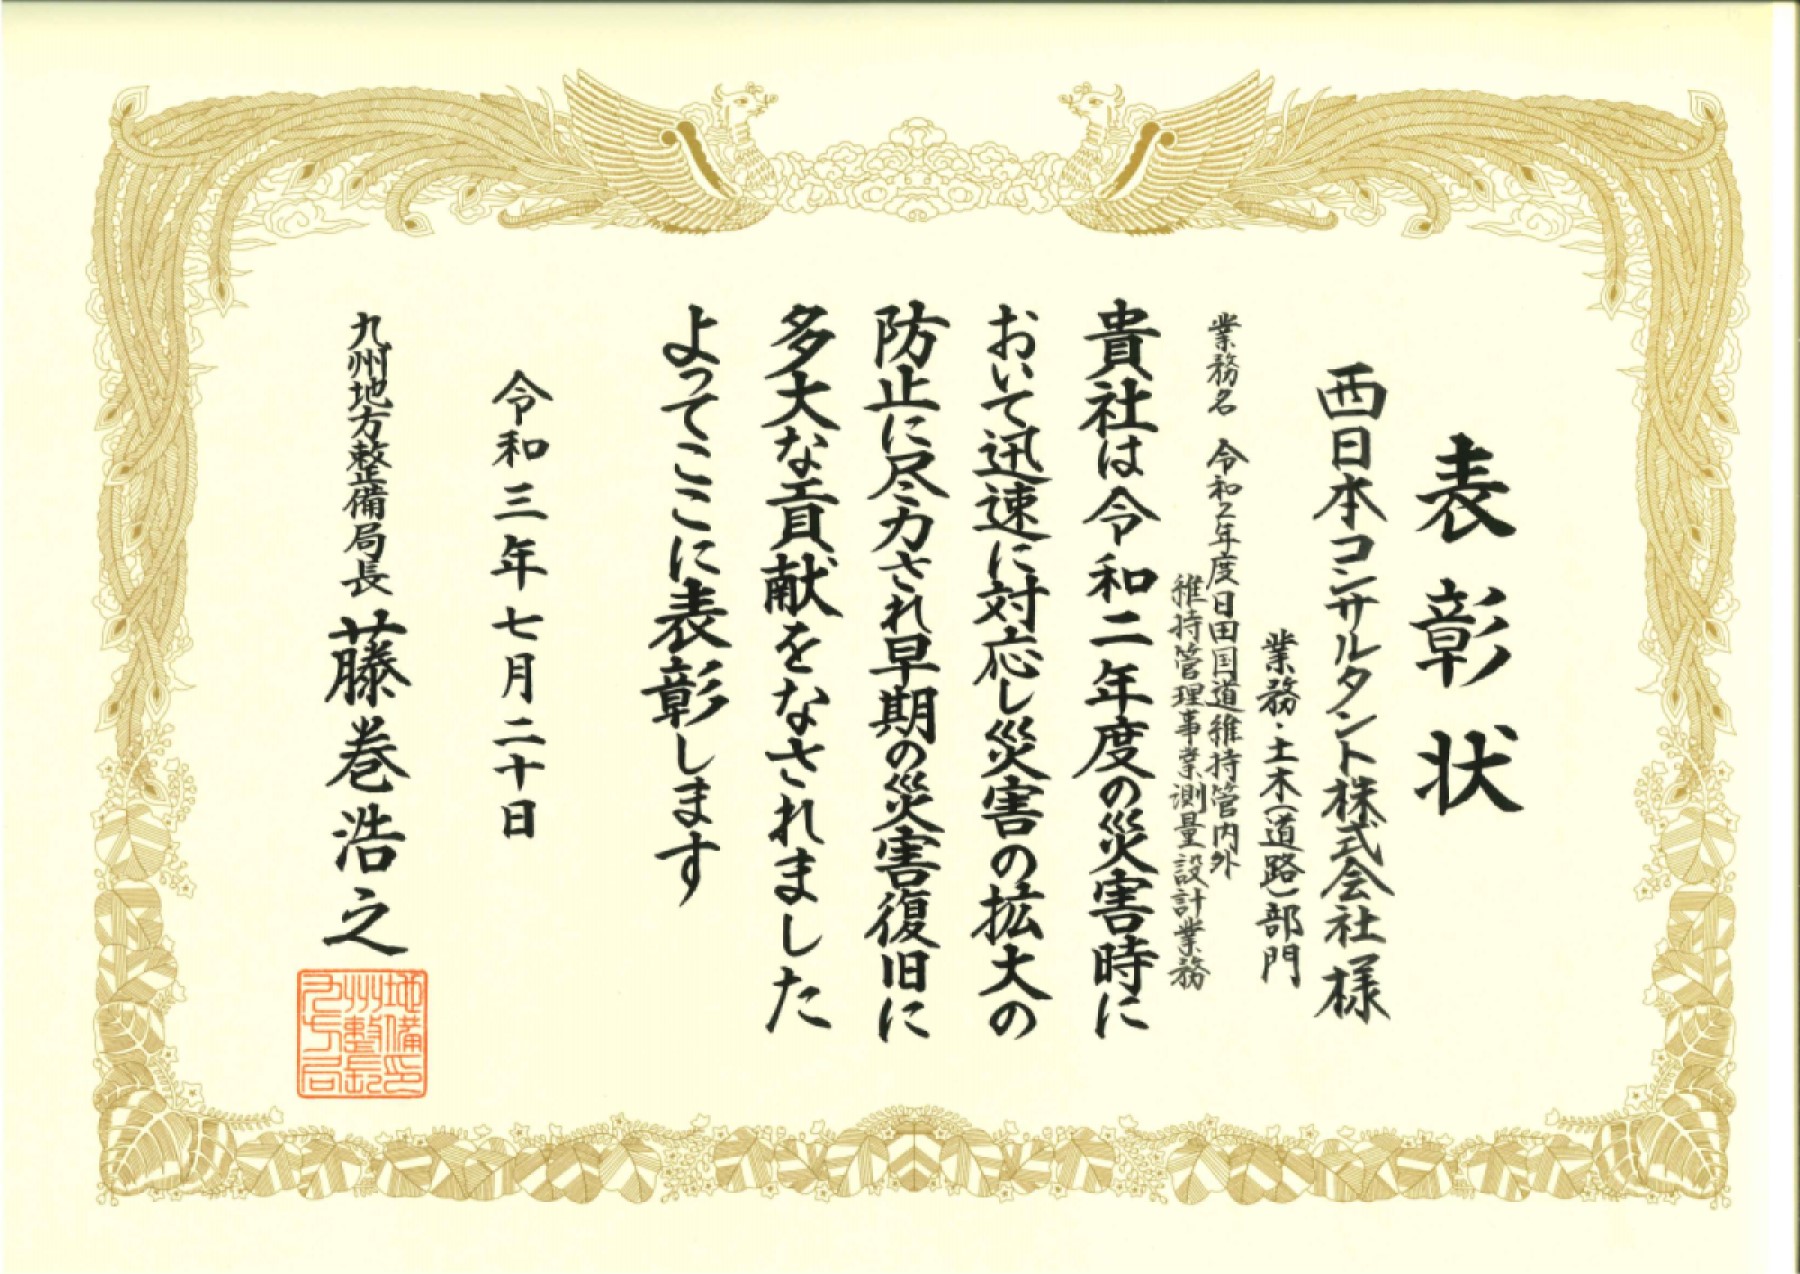 表彰状
西日本コンサルタント株式会社様
業務・土木(道路)部門
業務名 令和2年度日田国道維持管内外
維持管理事業測量設計業務
貴社は令和二年度の災害時に
おいて迅速に対応し災害の拡大の
防止に尽力され早期の災害復旧に
多大な貢献をなされました
よってここに表彰します
令和三年七月二十日
九州地方整備局長 藤巻浩之
地備印
州整長
九方局